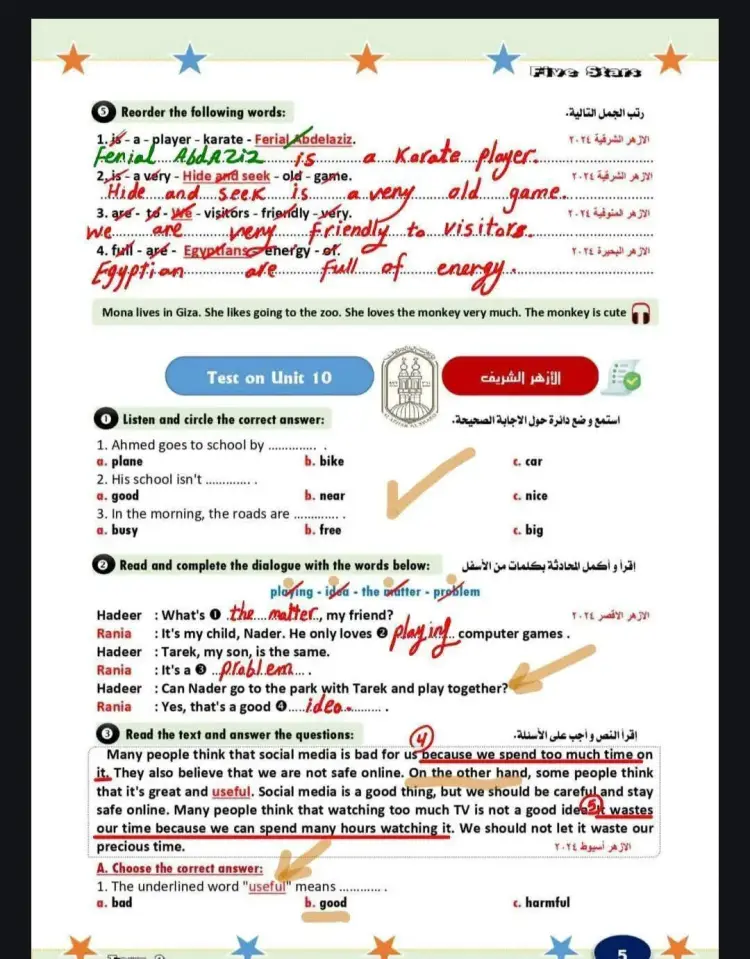 Five Stars
5 Reorder the following words: رتب الجمل التالية.
1. is - a - player - karate - Ferial Abdelaziz. الازهر الشرقية ٢٠٢٤
Ferial AbdAziz is a Karate player.
2. is - a very - Hide and seek - old - game. الازهر الشرقية ٢٠٢٤
Hide and seek is a very old game.
3. are - to - We - visitors - friendly - very. الازهر المنوفية ٢٠٢٤
we are very Friendly to visitors.
4. full - are - Egyptians - energy - of. الازهر البحيرة ٢٠٢٤
Egyptian are full of energy.
Mona lives in Giza. She likes going to the zoo. She loves the monkey very much. The monkey is cute
Test on Unit 10 الأزهر الشريف
1 Listen and circle the correct answer: استمع و ضع دائرة حول الاجابة الصحيحة.
1. Ahmed goes to school by ............. .
a. plane b. bike c. car
2. His school isn't ............. .
a. good b. near c. nice
3. In the morning, the roads are ............. .
a. busy b. free c. big
2 Read and complete the dialogue with the words below: اقرأ و أكمل المحادثة بكلمات من الأسفل
playing - idea - the matter - problem
Hadeer : What's 1 .the....matter.., my friend? الازهر الأقصر ٢٠٢٤
Rania : It's my child, Nader. He only loves 2 playing... computer games .
Hadeer : Tarek, my son, is the same.
Rania : It's a 3 ...problem... .
Hadeer : Can Nader go to the park with Tarek and play together?
Rania : Yes, that's a good 4 ....idea.......... .
3 Read the text and answer the questions: 4 اقرأ النص و أجب على الأسئلة.
Many people think that social media is bad for us because we spend too much time on
it. They also believe that we are not safe online. On the other hand, some people think
that it's great and useful. Social media is a good thing, but we should be careful and stay
safe online. Many people think that watching too much TV is not a good idea. 5 It wastes
our time because we can spend many hours watching it. We should not let it waste our
precious time. الازهر أسيوط ٢٠٢٤
A. Choose the correct answer:
1. The underlined word "useful" means ............ .
a. bad b. good c. harmful
5